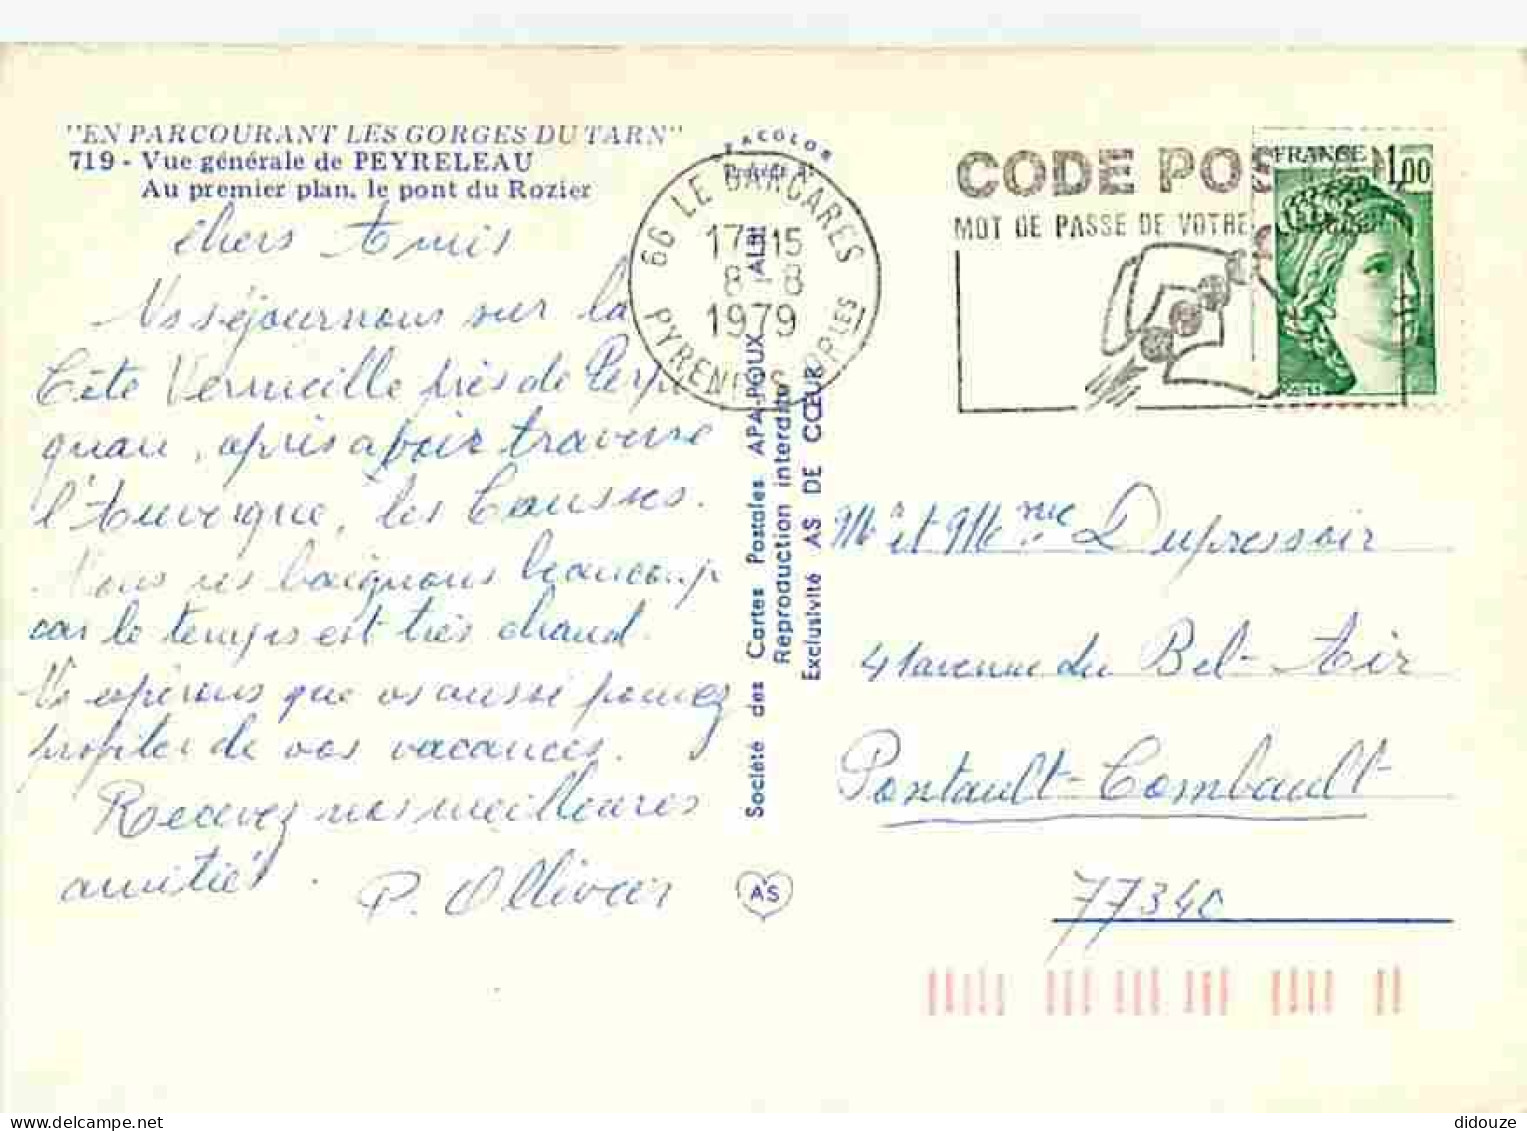 "EN PARCOURANT LES GORGES DU TARN"
719 - Vue générale de PEYRELEAU
Au premier plan, le pont du Rozier
chers Amis
Ns séjournons sur la
Côte Vermeille près de Perpi
gnan, après avoir traversé
l'Auvergne, les Causses.
Nous ns baignons beaucoup
car le temps est très chaud.
Ns espérons que vs aussi pouvez
profiter de vos vacances.
Recevez nos meilleures
amitiés.
P. Ollivier
66 LE BARCARES
17 15
8 - 8
1979
PYRENEES ORPLES
Société des Cartes Postales APA-POUX ALBI
Reproduction interdite
Exclusivité AS DE CŒUR
AS
CODE POS
MOT DE PASSE DE VOTRE
FRANCE 1,00
Mr et Mme Dupressoir
41 avenue du Bel-Air
Pontault-Combault
77340
didouze